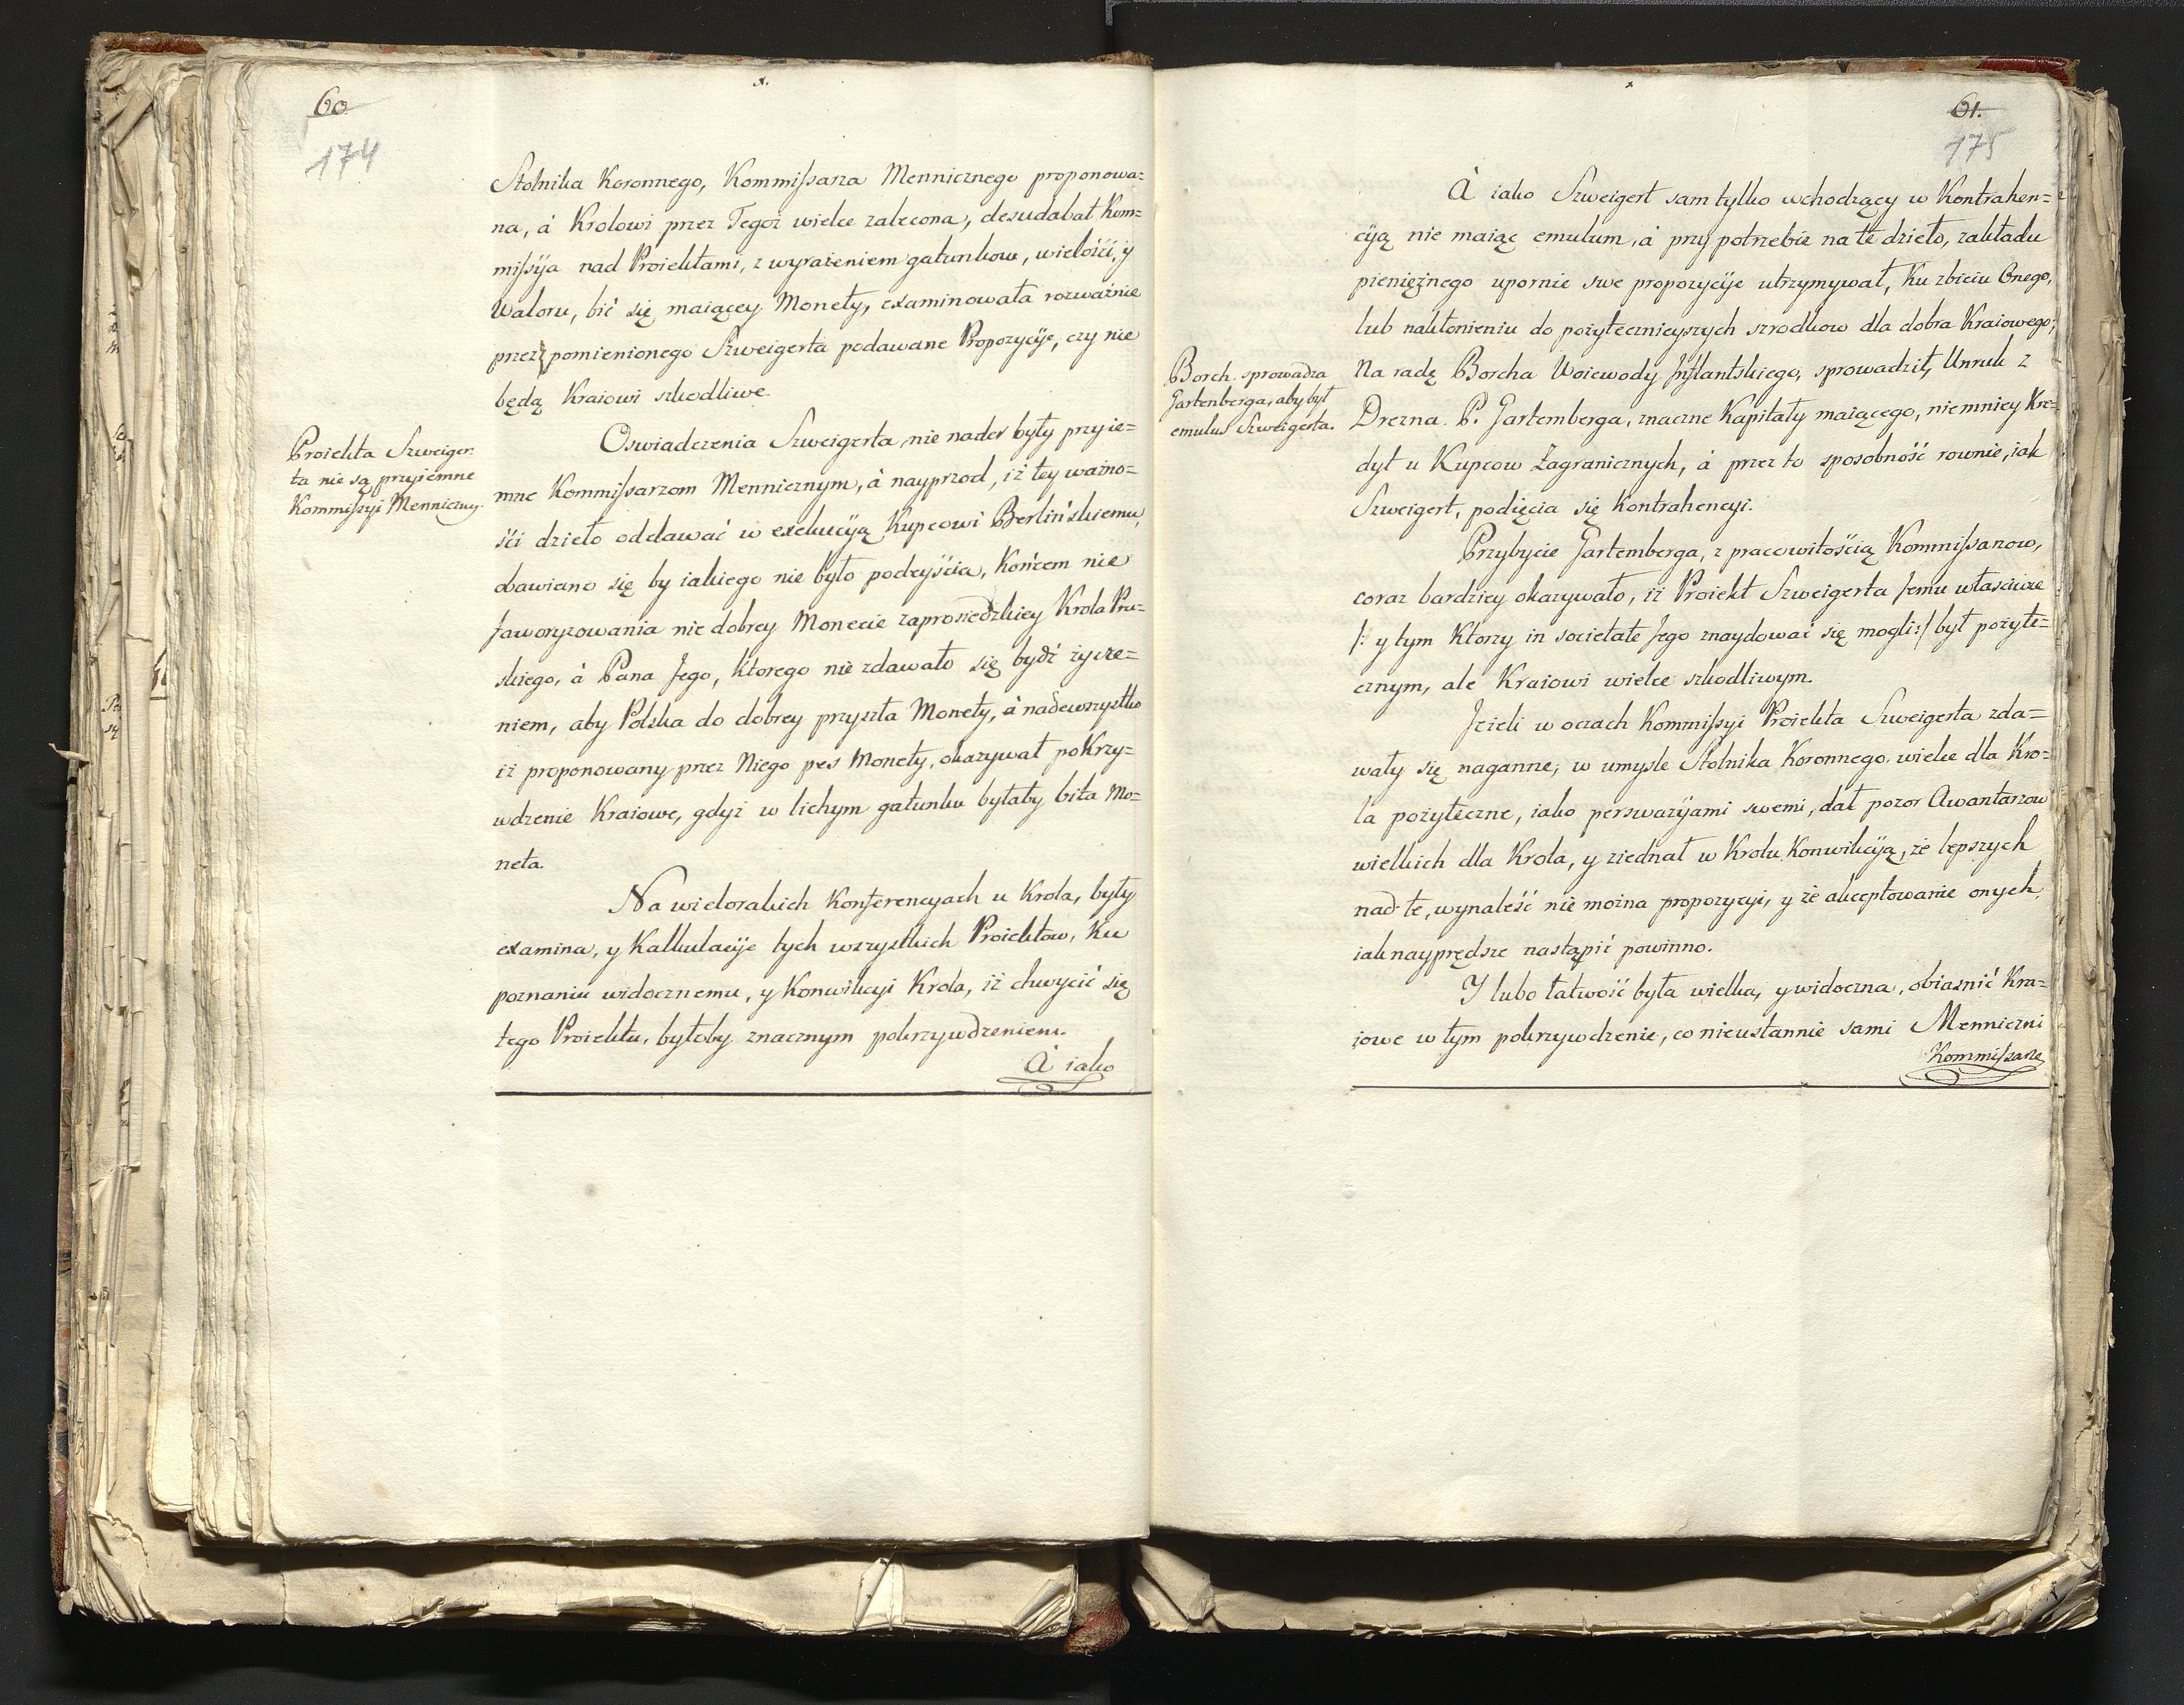 60
174
Stolnika Koronnego, Kommiſsarza Mennicznego proponowa=
na, á Krolowi przez Tegoż wielce zalecona, desudabat Kom=
miſsÿa nad Proiektami, z wyrażeniem gatunkow, wielości, y
Waloru, bić się maiącey Monety, examinowała rozważnie
przez pomienionego Szweigerta podawane Propozycÿe, czy nie
będą Kraiowi szkodliwe.
Proiekta Szweiger=
ta nie są przyiemne
Kommiſsyi Menniczney.
Oswiadczenia Szweigerta nie nader były przyie=
mne Kommiſsarzom Mennicznym, à nayprzod, iż tey ważno=
ści dzieło oddawać w exekucÿą Kupcowi Berlińskiemu,
obawiano się by iakiego nie było podeyścia, Końcem nie
faworyzowania nie dobrey Monecie zaprosiedzkiey Krola Pru=
skiego, à Pana Jego, ktorego nie zdawało się bydź życze=
niem, aby Polska do dobrey przyszła Monety, à nadewszystko
iż proponowany przez Niego pes Monety, okazywał pokrzy=
wdzenie Kraiowe, gdyż w lichym gatunku byłaby bita Mo=
neta.
Na wielorakich Konferencyach u Krola, były
examina, y Kalkulacÿe tych wszystkich Proiektow, Ku
poznaniu widocznemu, y Konwikcyi Krola, iż chwycić się
tego Proiektu, byłoby znacznym pokrzywdzeniem.
À iako
61.
175
À iako Szweigert sam tylko wchodzący w Kontrahen=
cÿą nie maiąc emulum, à przy potrzebie na te dzieło, zakładu
pieniężnego upornie swe propozycÿe utrzymywał, Ku zbiciu Onego,
lub nakłonieniu do pożytecznieyszych szrodkow dla dobra Kraiowego;
Borch sprowadza
Gartenberga, aby był
emulus Szweigerta.
Na radę Borcha Woiewody Inflantskiego, sprowadził, Unruh z
Drezna P. Gartemberga, znaczne Kapitały maiącego, niemniey Kre=
dyt u Kupcow Zagranicznych, à przez to sposobność rownie, iak
Szweigert, podięcia się Kontrahencyi.
Przybycie Gartemberga, z pracowitością Kommiſsarzow,
coraz bardziey okazywało, iż Proiekt Szweigerta Jemu własciwie
/: y tym Ktorzy in societate Jego znaydować się mogli :/ był pożyte=
cznym, ale Kraiowi wielce szkodliwym.
Jeżeli w oczach Kommiſsyi Proiekta Szweigerta zda=
wały się naganne; w umysle Stolnika Koronnego wielce dla Kro=
la pożyteczne, iako perswazÿami swemi, dał pozor Awantarzow
wielkich dla Krola, y ziednał w Krolu Konwikcÿą, że lepszych
nad te, wynaleść nie można propozycyi, y że akceptowanie onych,
iak nayprędsze nastąpić powinno.
Y lubo łatwość była wielka, y widoczna, obiasnić Kra=
iowe w tym pokrzywdzenie, co nieustannie sami Menniczni
Kommiſsarze